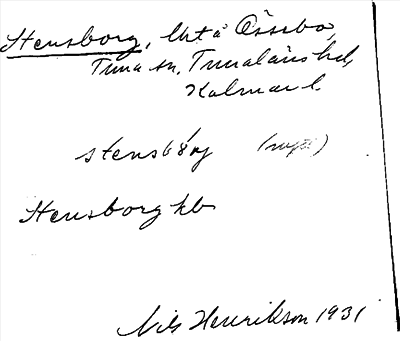 Stensborg, Uità Össebo,
Tuna sn, Tunaläns hd,
Kalmar l.
stensbory (nytt)
Stensborg kb
Nils Henrikson 1931